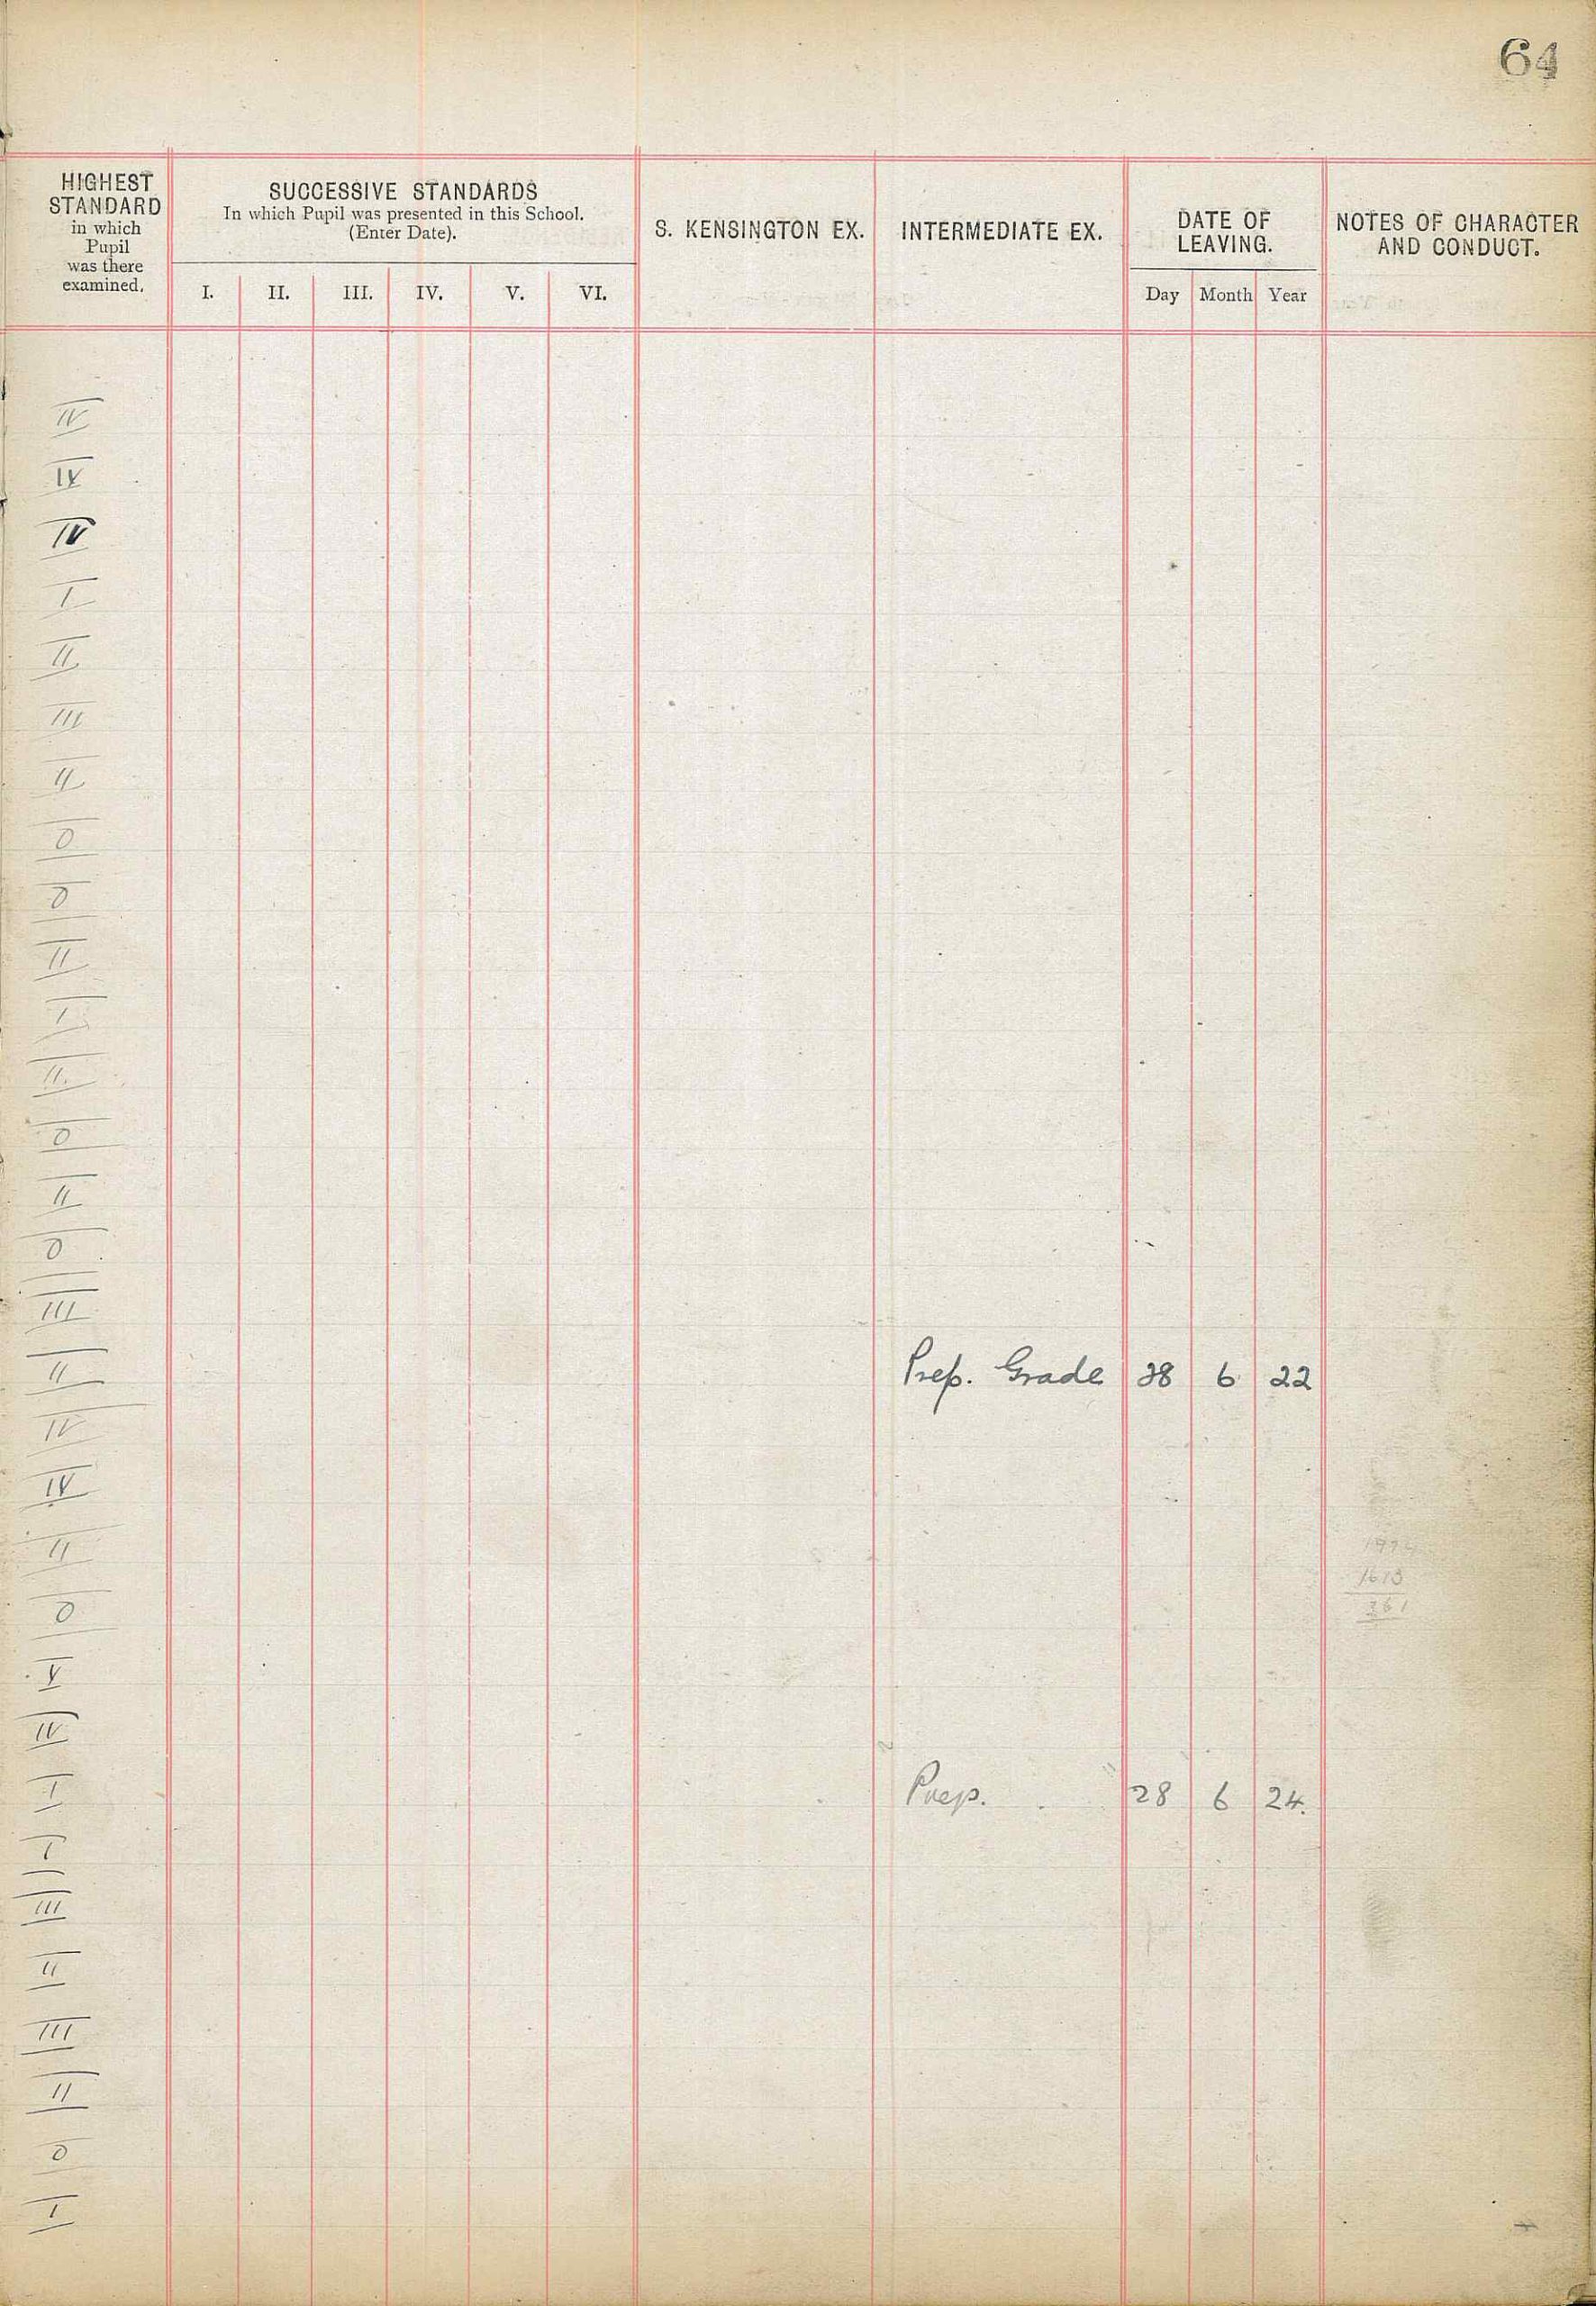 64
HIGHEST
STANDARD
in which
Pupil
was there
examined.
SUCCESSIVE STANDARDS
In which Pupil was presented in this School.
(Enter Date).
I. II. III. IV. V. VI.
S. KENSINGTON EX.
INTERMEDIATE EX.
DATE OF
LEAVING.
Day Month Year
NOTES OF CHARACTER
AND CONDUCT.
IV
IV
IV
I
II
III
II
0
0
II
I
II
0
II
0
III
II Prep. Grade 28 6 22
IV
IV
II
1613
361
0
V
IV
I Prep. 28 6 24.
I
III
II
III
II
0
I